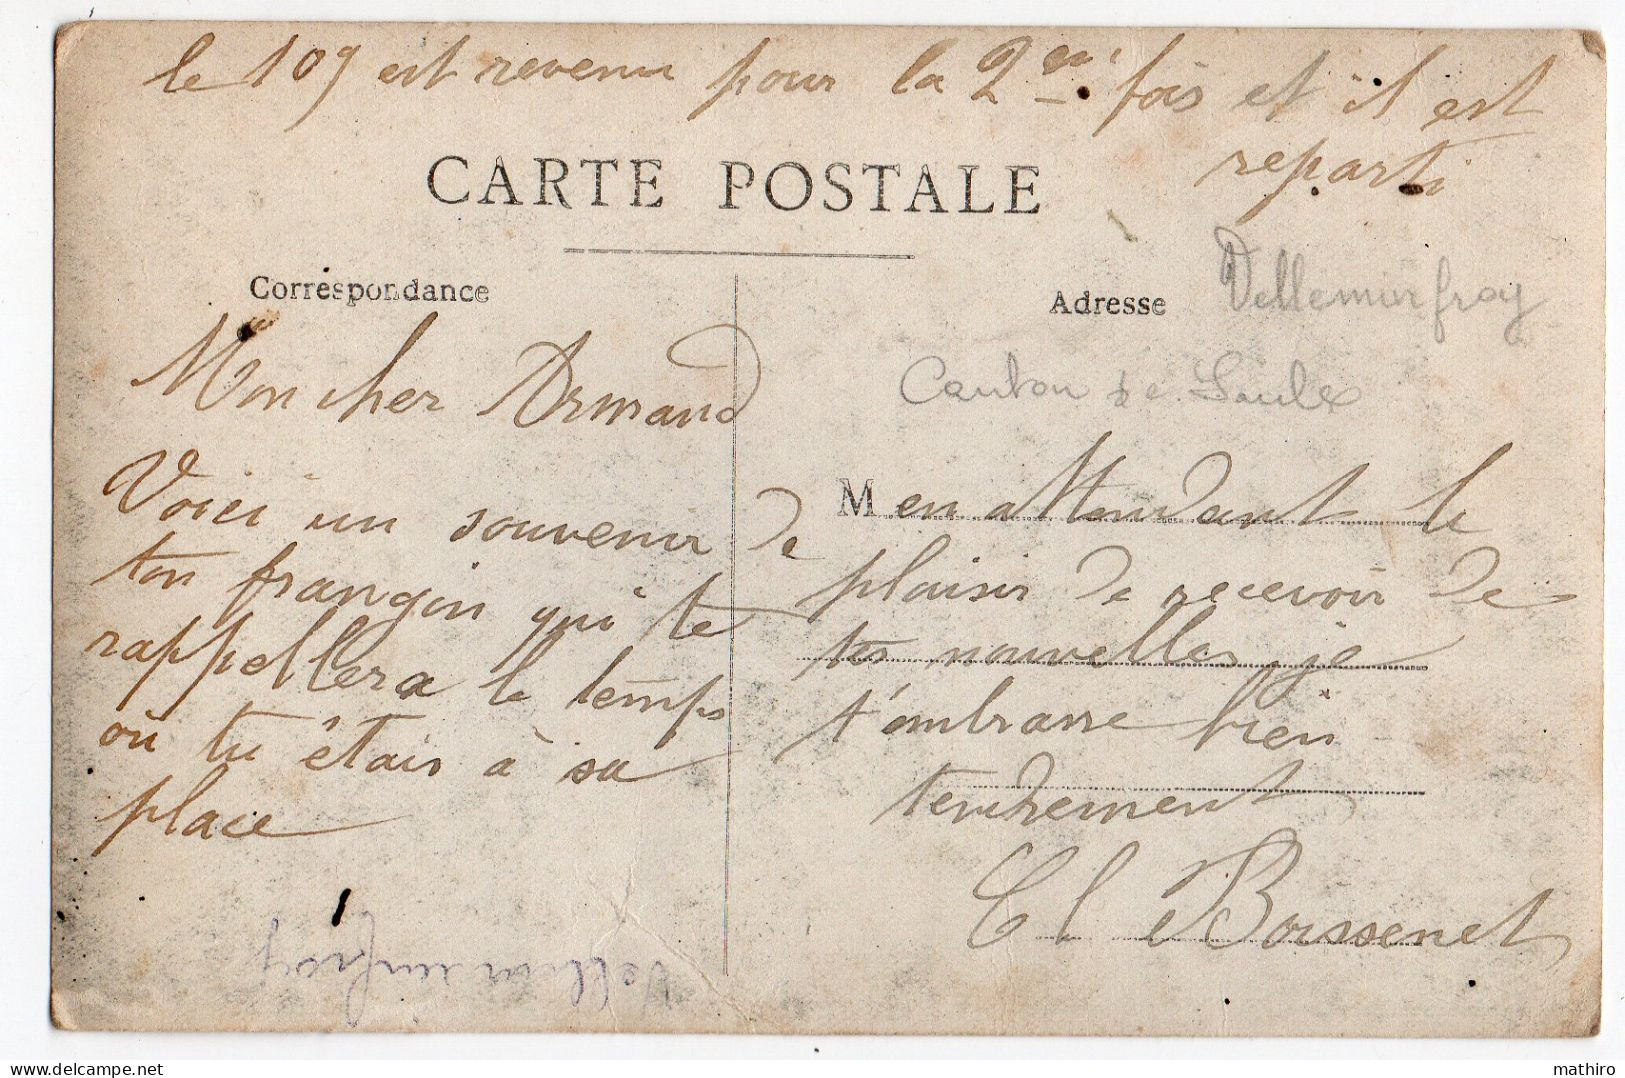 le 109 est revenu pour la 2em fois et il est
reparti
CARTE POSTALE
Correspondance
Adresse
Velleminfroy
Canton de Saulx
Mon cher Armand
Voici un souvenir de
ton frangin qui te
rappellera le temps
où tu étais à sa
place
M en attendant le
plaisir de recevoir de
tes nouvelles je
t'embrasse bien
tendrement
Cl Boissenet
Velleminfroy
mathiro